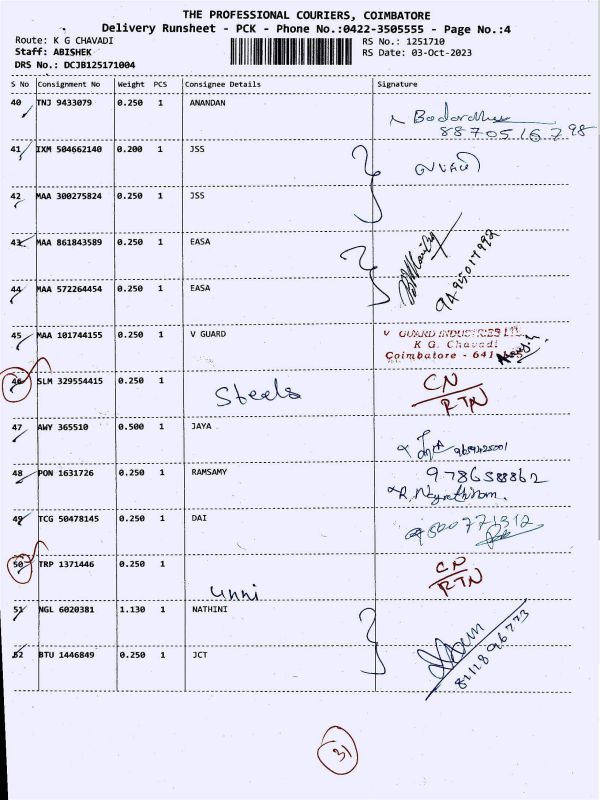 THE PROFESSIONAL COURIERS, COIMBATORE
Delivery Runsheet - PCK - Phone No.:0422-3505555 - Page No.:4
Route: K G CHAVADI RS No.: 1251710
Staff: ABISHEK RS Date: 03-Oct-2023
DRS No.: DCJB125171004
S No Consignment No Weight PCS Consignee Details Signature
40 TNJ 9433079 0.250 1 ANANDAN
41 IXM 504662140 0.200 1 JSS
42 MAA 300275824 0.250 1 JSS
43 MAA 861843589 0.250 1 EASA
44 MAA 572264454 0.250 1 EASA
45 MAA 101744155 0.250 1 V GUARD
V GUARD INDUSTRIES LTD
K G. Chavadi
Coimbatore - 641
46 SLM 329554415 0.250 1 Steels CN
RTN
47 AWY 365510 0.500 1 JAYA
48 PON 1631726 0.250 1 RAMSAMY
49 TCG 50478145 0.250 1 DAI 9500771312
50 TRP 1371446 0.250 1 CN
RTN
unni
51 NGL 6020381 1.130 1 NATHINI
52 BTU 1446849 0.250 1 JCT
31